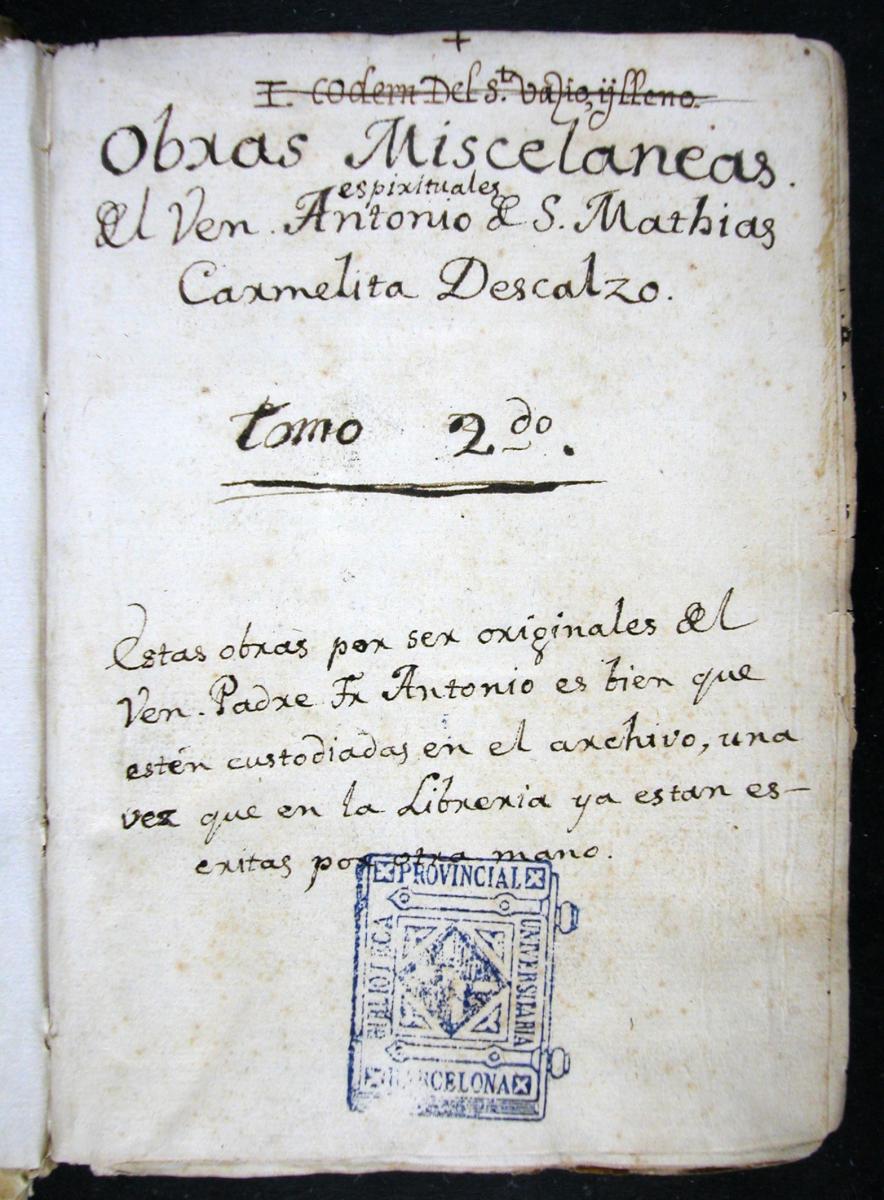 +
I. Codern Del S.to vazio, y lleno.
Obras Miscelaneas.
espirituales
del Ven. Antonio de S. Mathias
Carmelita Descalzo.
tomo 2do.
Estas obras por ser originales del
Ven. Padre Fr Antonio es bien que
estén custodiadas en el archivo, una
vez que en la Libreria ya estan es-
critas por otra mano.
PROVINCIAL
BIBLIOTECA
UNIVERSITARIA
BARCELONA